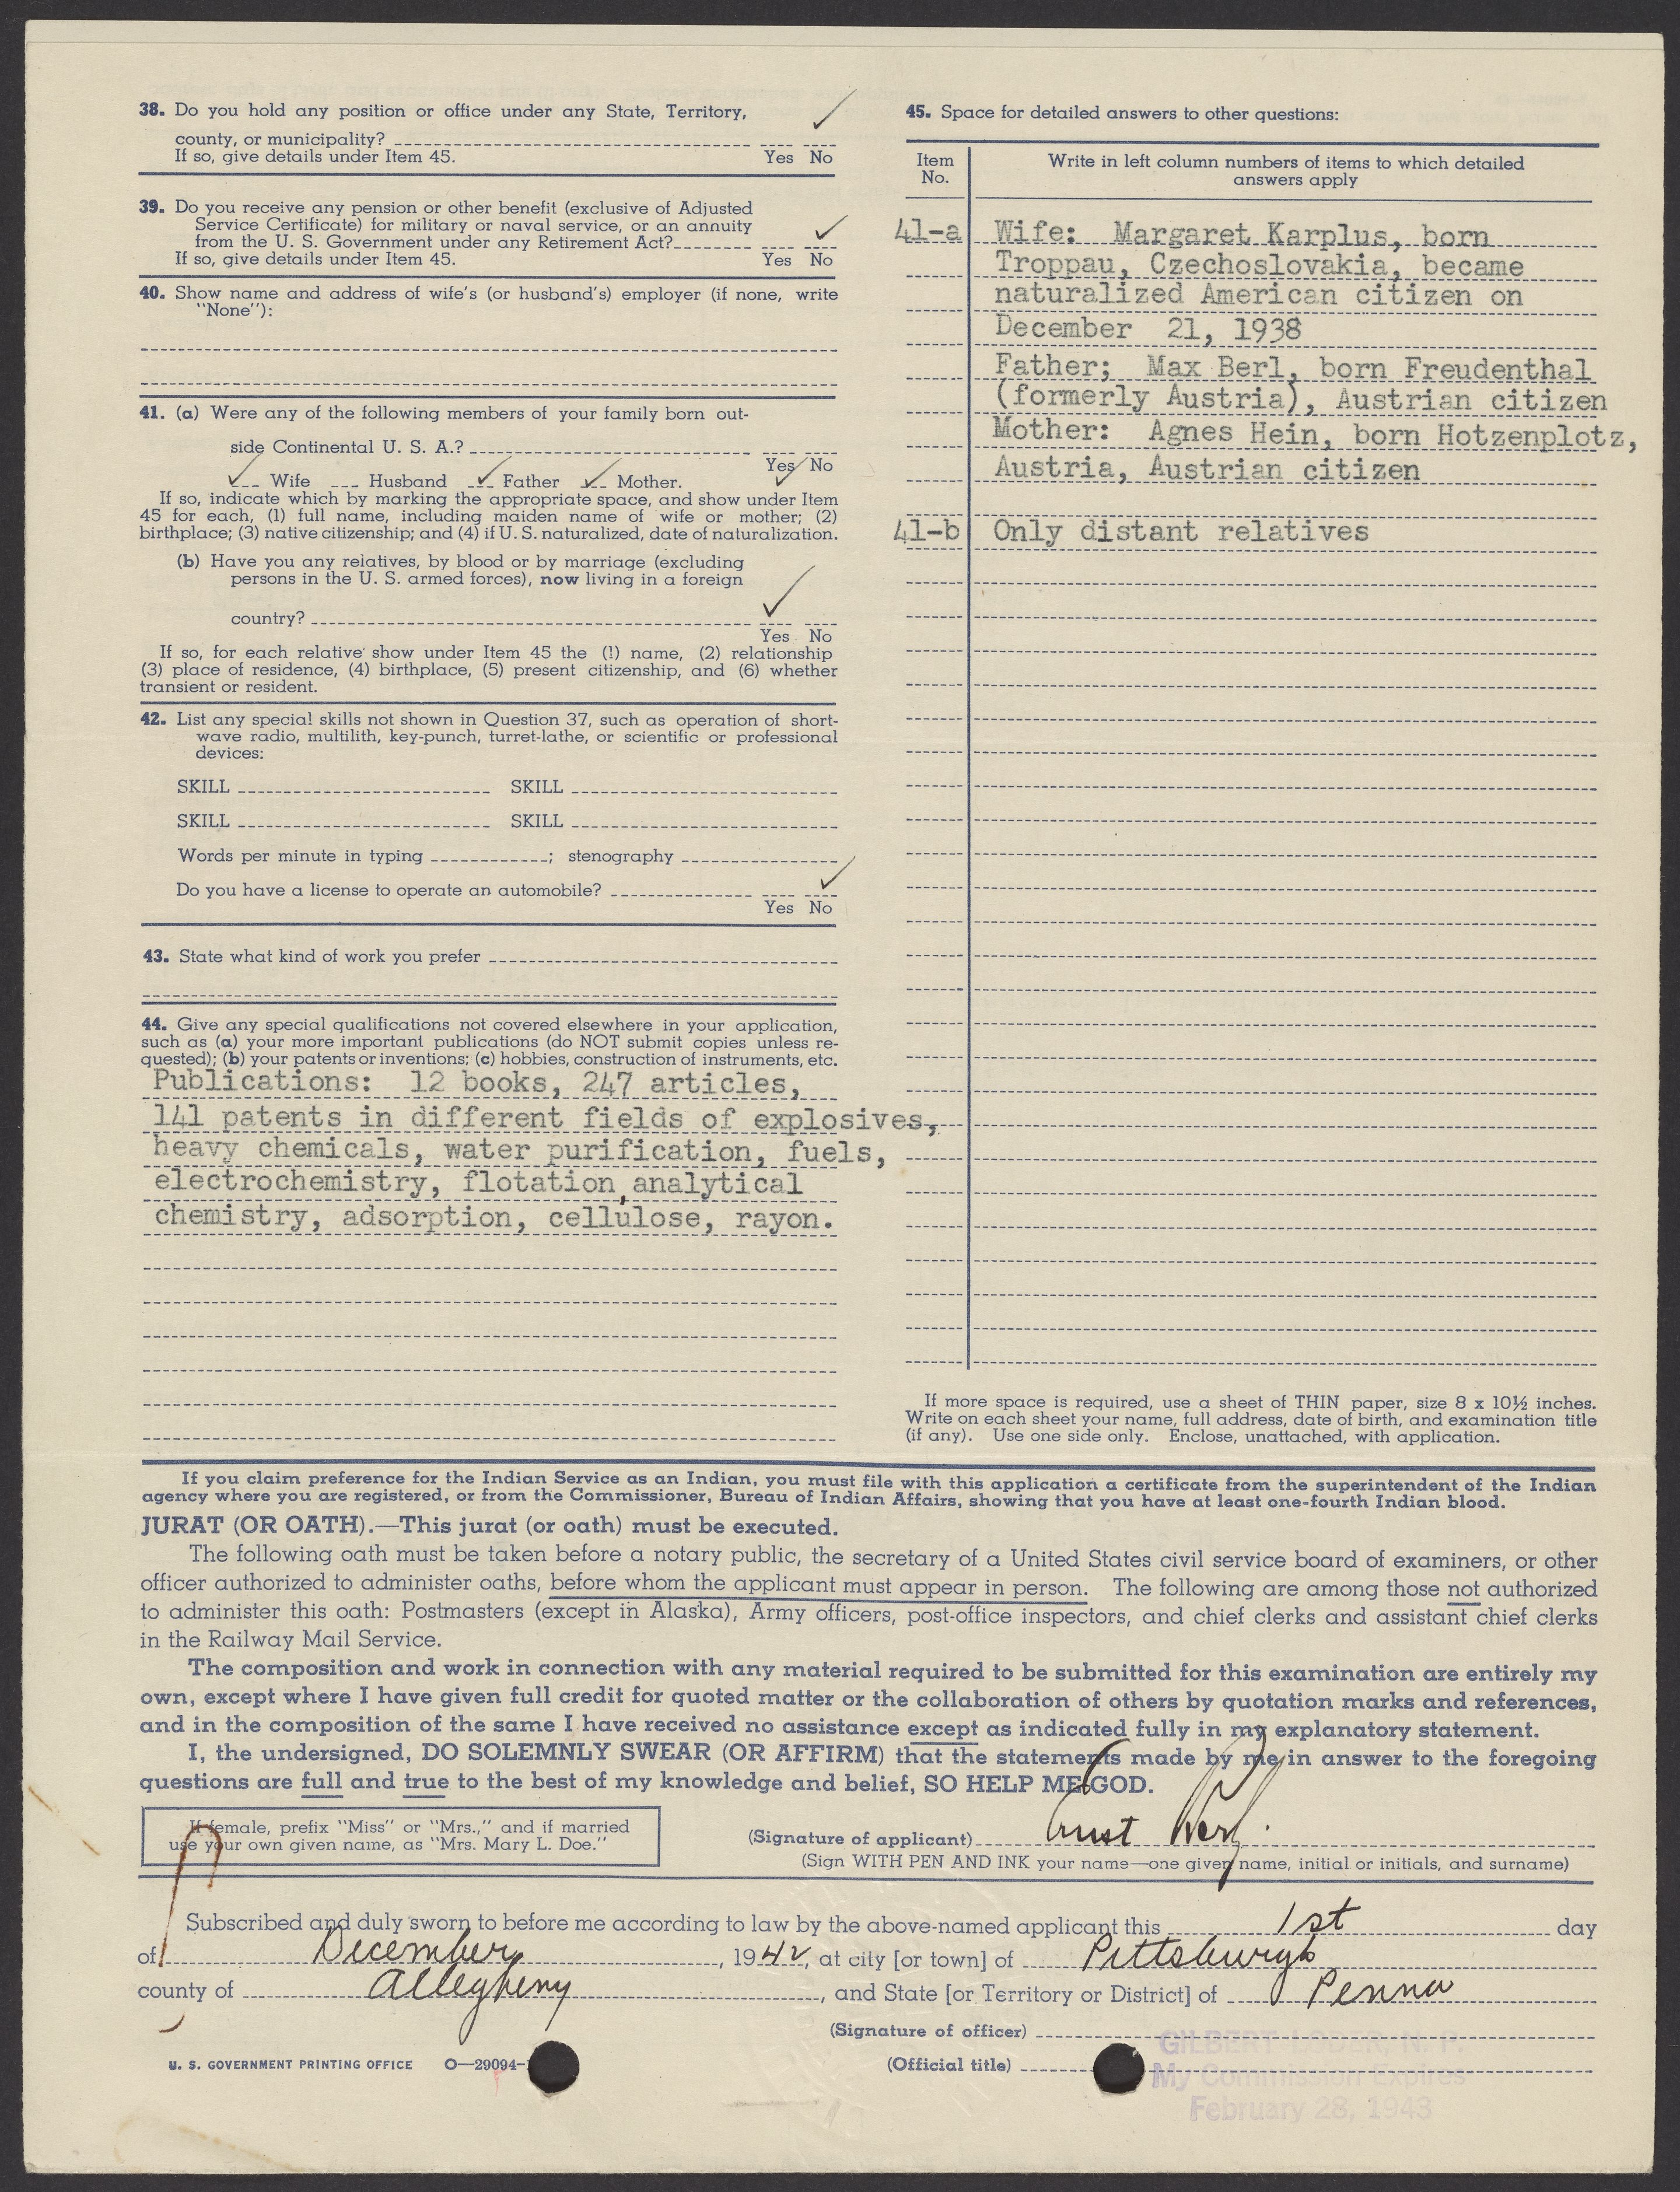 38. Do you hold any position or office under any State, Territory,
county, or municipality?
If so, give details under Item 45.
Yes No
39. Do you receive any pension or other benefit (exclusive of Adjusted
Service Certificate) for military or naval service, or an annuity
from the U. S. Government under any Retirement Act?
If so, give details under Item 45.
Yes No
40. Show name and address of wife's (or husband's) employer (if none, write
"None"):
41. (a) Were any of the following members of your family born out-
side Continental U. S. A.?
Yes No
Wife Husband Father Mother.
If so, indicate which by marking the appropriate space, and show under Item
45 for each, (1) full name, including maiden name of wife or mother; (2)
birthplace; (3) native citizenship; and (4) if U. S. naturalized, date of naturalization.
(b) Have you any relatives, by blood or by marriage (excluding
persons in the U. S. armed forces), now living in a foreign
country?
Yes No
If so, for each relative show under Item 45 the (1) name, (2) relationship
(3) place of residence, (4) birthplace, (5) present citizenship, and (6) whether
transient or resident.
42. List any special skills not shown in Question 37, such as operation of short-
wave radio, multilith, key-punch, turret-lathe, or scientific or professional
devices:
SKILL SKILL
SKILL SKILL
Words per minute in typing ; stenography
Do you have a license to operate an automobile?
Yes No
43. State what kind of work you prefer
44. Give any special qualifications not covered elsewhere in your application,
such as (a) your more important publications (do NOT submit copies unless re-
quested); (b) your patents or inventions; (c) hobbies, construction of instruments, etc.
Publications: 12 books, 247 articles,
141 patents in different fields of explosives,
heavy chemicals, water purification, fuels,
electrochemistry, flotation, analytical
chemistry, adsorption, cellulose, rayon.
45. Space for detailed answers to other questions:
Item
No.
Write in left column numbers of items to which detailed
answers apply
41-a Wife: Margaret Karplus, born
Troppau, Czechoslovakia, became
naturalized American citizen on
December 21, 1938
Father; Max Berl, born Freudenthal
(formerly Austria), Austrian citizen
Mother: Agnes Hein, born Hotzenplotz,
Austria, Austrian citizen
41-b Only distant relatives
If more space is required, use a sheet of THIN paper, size 8 x 10½ inches.
Write on each sheet your name, full address, date of birth, and examination title
(if any). Use one side only. Enclose, unattached, with application.
If you claim preference for the Indian Service as an Indian, you must file with this application a certificate from the superintendent of the Indian
agency where you are registered, or from the Commissioner, Bureau of Indian Affairs, showing that you have at least one-fourth Indian blood.
JURAT (OR OATH).—This jurat (or oath) must be executed.
The following oath must be taken before a notary public, the secretary of a United States civil service board of examiners, or other
officer authorized to administer oaths, before whom the applicant must appear in person. The following are among those not authorized
to administer this oath: Postmasters (except in Alaska), Army officers, post-office inspectors, and chief clerks and assistant chief clerks
in the Railway Mail Service.
The composition and work in connection with any material required to be submitted for this examination are entirely my
own, except where I have given full credit for quoted matter or the collaboration of others by quotation marks and references,
and in the composition of the same I have received no assistance except as indicated fully in my explanatory statement.
I, the undersigned, DO SOLEMNLY SWEAR (OR AFFIRM) that the statements made by me in answer to the foregoing
questions are full and true to the best of my knowledge and belief, SO HELP ME GOD.
If female, prefix "Miss" or "Mrs.," and if married
use your own given name, as "Mrs. Mary L. Doe."
(Signature of applicant) Ernst Berl.
(Sign WITH PEN AND INK your name—one given name, initial or initials, and surname)
Subscribed and duly sworn to before me according to law by the above-named applicant this 1st day
of December, 1942, at city [or town] of Pittsburgh
county of Allegheny, and State [or Territory or District] of Penna
(Signature of officer)
GILBERT LODER, N. P.
U. S. GOVERNMENT PRINTING OFFICE O—29094-
(Official title)
My Commission Expires
February 28, 1943